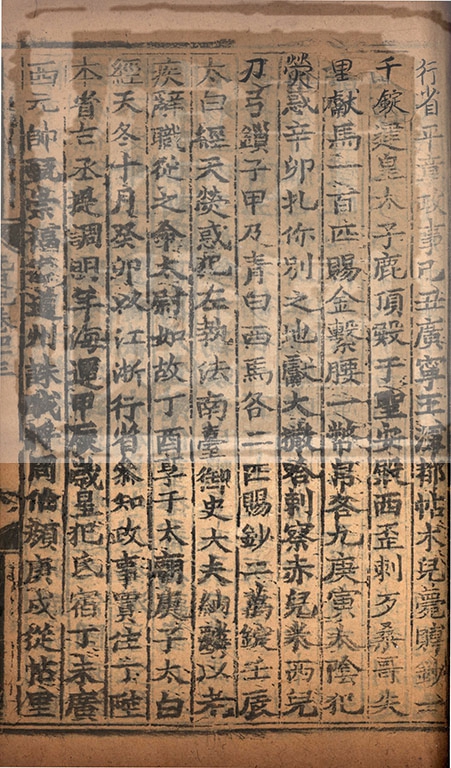 行省平章政事己丑廣寧王渾都帖木兒薨賻鈔一
千錠建皇太子鹿頂殿于聖安殿西歪剌歹桑哥失
里獻馬一百匹賜金繫腰一幣帛各九庚寅太陰犯
熒惑辛卯扎你別之地獻大撒哈剌察赤兒米西兒
刀弓鎖子甲及青白西馬各二匹賜鈔二萬錠壬辰
太白經天熒惑犯左執法南臺御史大夫納麟以老
疾辭職從之命太尉如故丁酉享于太廟庚子太白
經天冬十月癸卯以江浙行省參知政事買住丁陞
本省右丞提調明年海運甲辰歲星犯氐宿丁未廣
西元帥甄崇福復道州誅賊將周伯顏庚戌從帖里